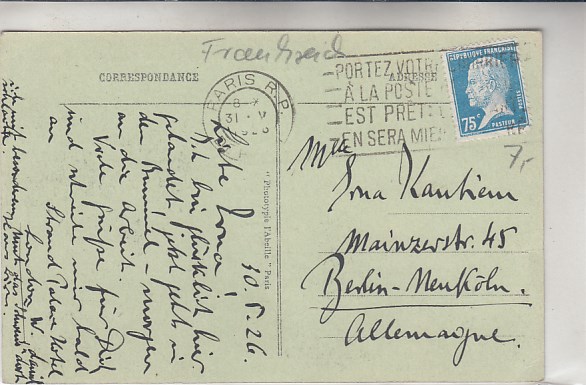 Frankreich
CORRESPONDANCE
ADRESSE
PARIS R.P.
8
31 V
PORTEZ VOTRE
À LA POSTE
EST PRÊT:
EN SERA MIE
REPUBLIQUE FRANÇAISE
POSTES
75c
PASTEUR
7,-
Mlle
Erna Kantiem
Mainzerstr. 45
Berlin-Neukölln.
Allemagne.
"Phototypie l'Abeille" Paris
30.5.26.
Liebe Erna!
Ich bin glücklich hier
gelandet. Jetzt geht's in
den Bummel - morgen
an die Arbeit.
Viele Grüße für Dich
und schreibe mir bald
an Strand Palace Hotel
London W.